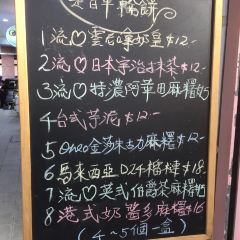 是日車輪餅
1 流♡雲呢拿奶皇 $12-
2 流♡日本宇治抹茶 $12-
3 流♡特濃阿華田麻糬 $15
4 台式芋泥 $12-
5 Oreo金莎朱古力麻糬 $12-
6 馬來西亞D24榴槤 $18
7 流♡英式伯爵茶麻糬 $15
8 港式奶醬多麻糬 $16
(4~5個一盒)